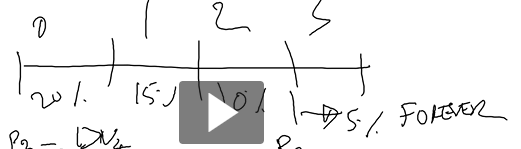 0 1 2 3
20% 15% 10% → 5% FOREVER
P2 = DIV